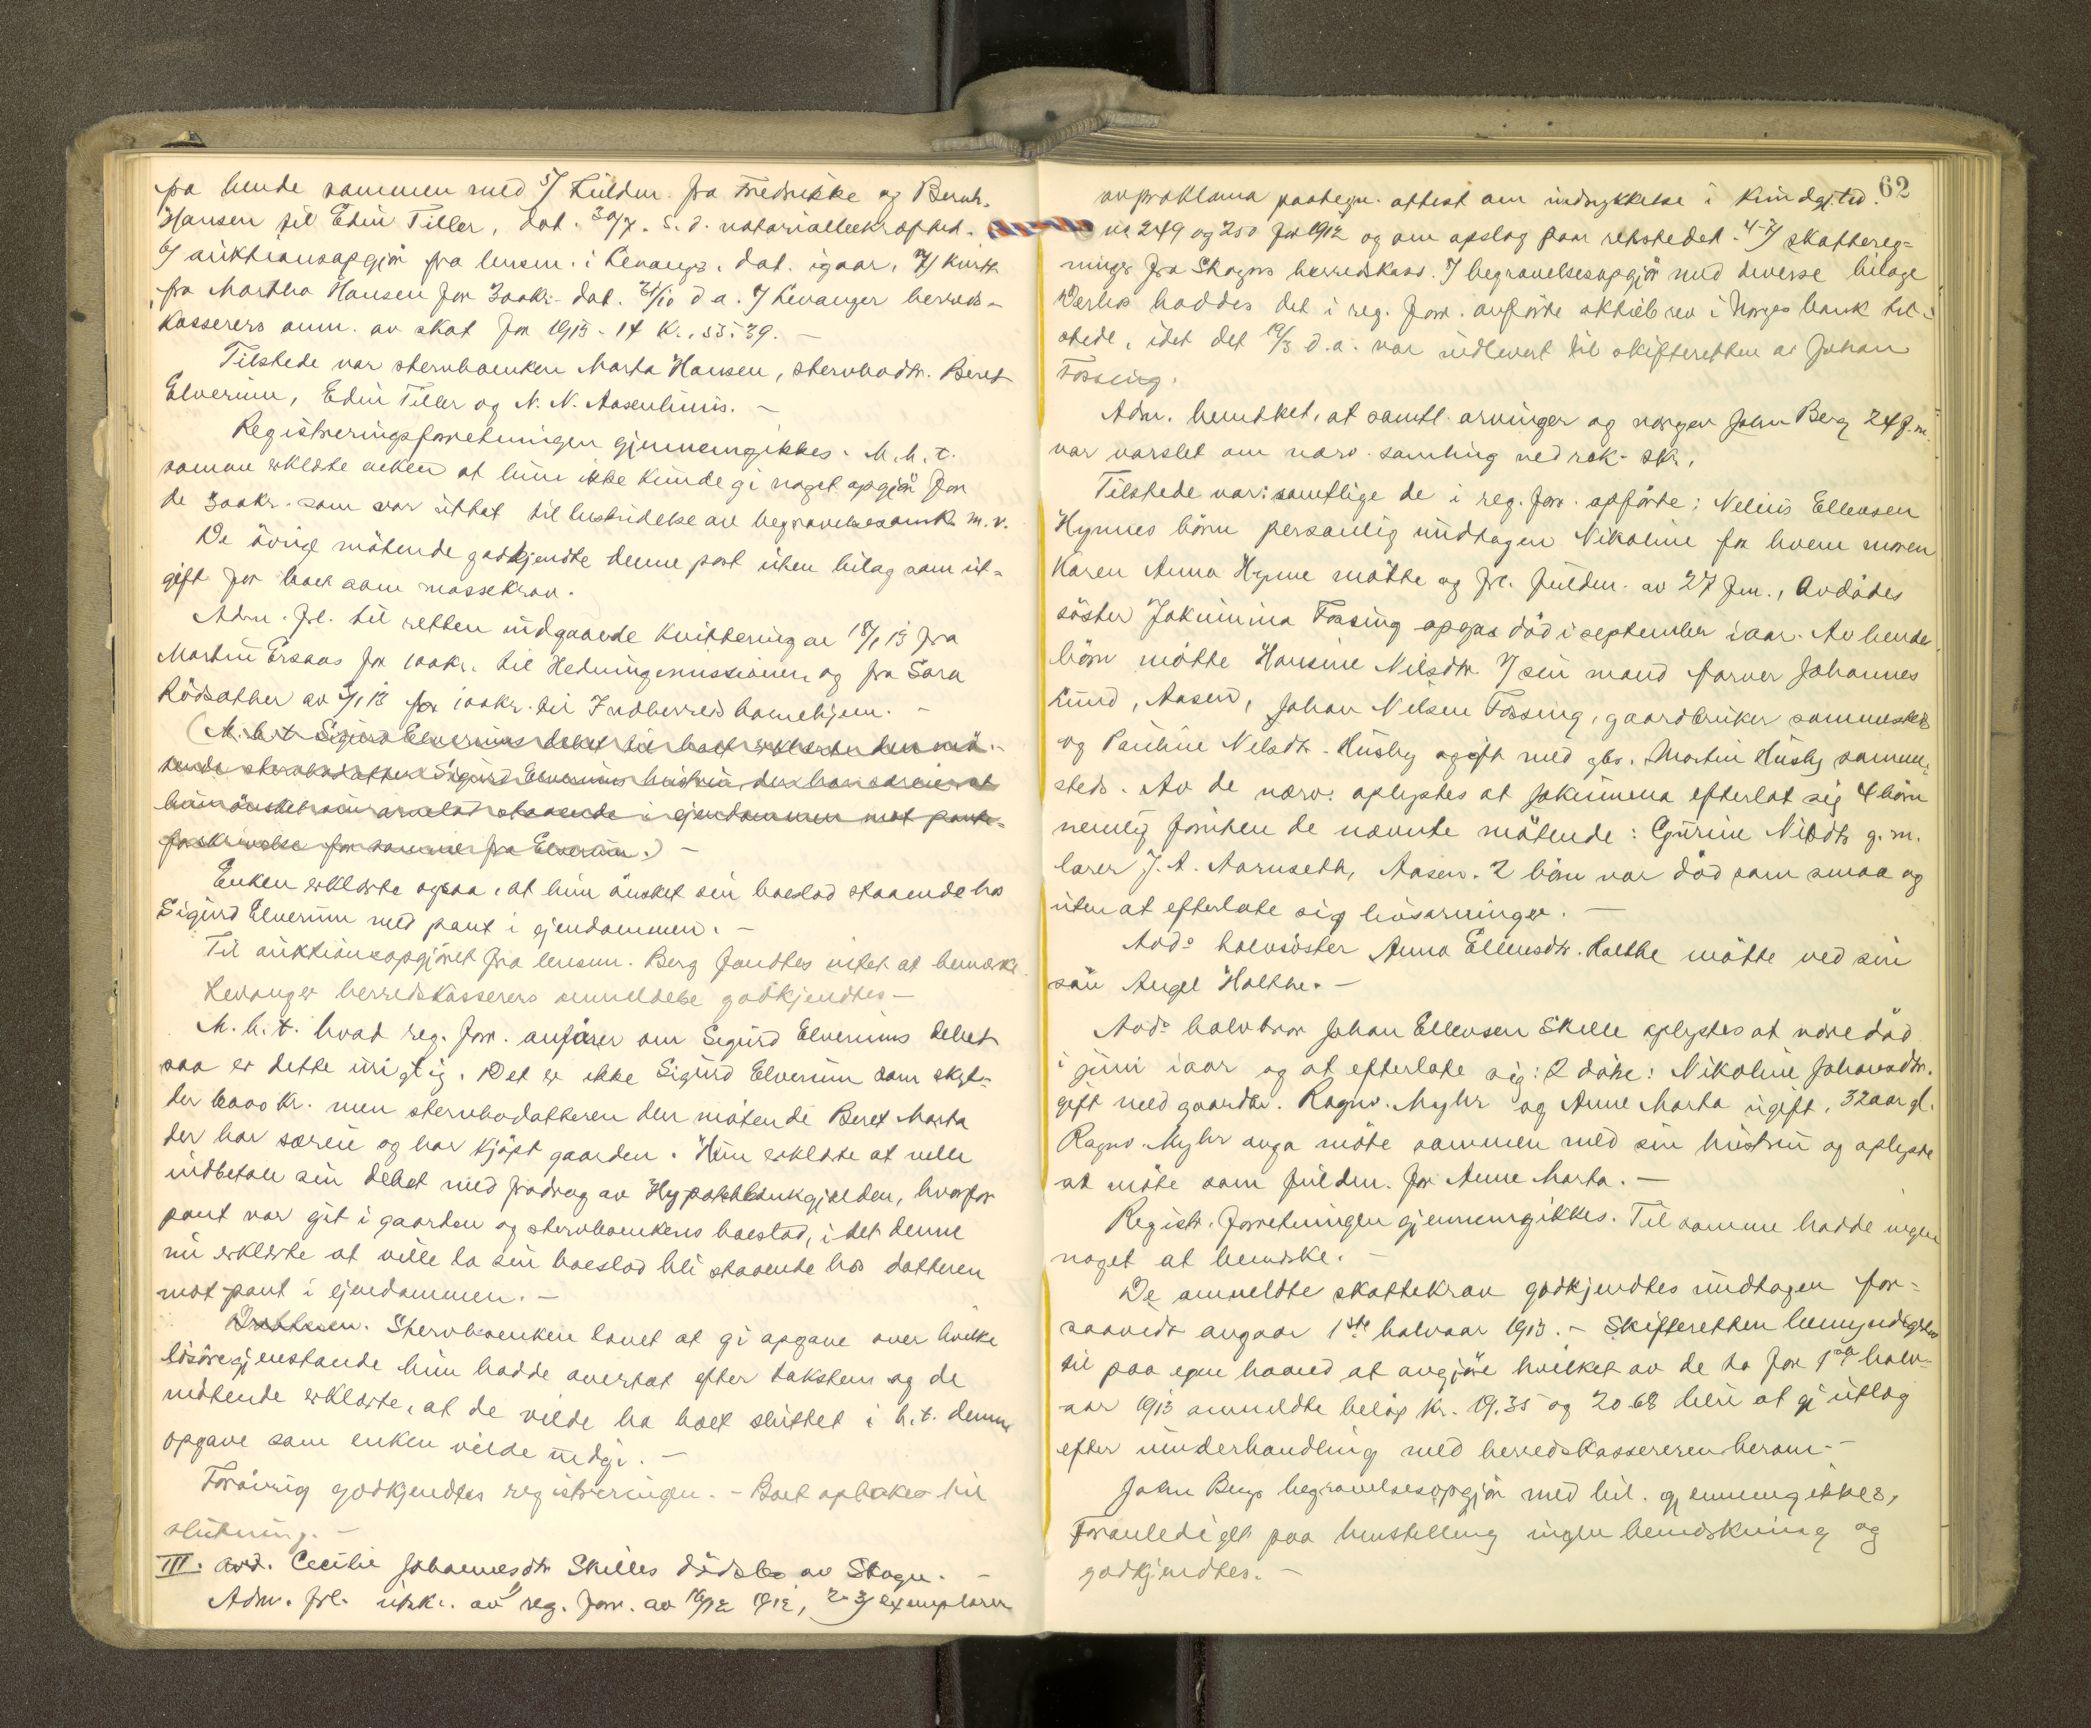 fra hende sammen med 5/ fuldm. fra Fredrikke og Bernh.
Hansen til Edin Tiller, dat. 30/7. s. d. notarialbekræftet.
6/ auktionsopgjör fra lensm. i Levanger, dat. igaar, 7/ kvitt.
fra Martha Hansen for 300 kr. dat. 21/10 d. a. Levanger herreds-
kasserers anm. av skat for 1913-14 Kr. 55.39. -
Tilstede var stervboenken Marta Hansen, stervbodtr. Beret
Elverum, Edin Tiller og N. N. Aasenhuus. -
Registreringsforretningen gjennemgikkes. M. h. t.
samme erklærte enken at hun ikke kunde gi noget opgjör for
de 300 kr. som var uttat til bestridelse av begravelsesomk. m. v.
De övrige mötende godkjendte denne post uten bilag som ut-
gift for boet som massekrav.
Adm. frl. til retten indgaaede kvittering av 18/1 13 fra
Martin Ersaas for 100 kr. til Hedningemissionen og fra Sara
Rödsæther av 2/1 13 for 100 kr. til Indherreds barnehjem. -
(M. h. t. Sigurd Elverums debet til boet erklærte den mö-
tende stervbodatter Sigurd Elverums hustru, der har særeie at
hun önsket sin arvelod staaende i ejendommen mot pante-
forskrivelse for samme fra Elverum.) -
Enken erklærte ogsaa, at hun önsket sin boeslod staaende hos
Sigurd Elverum med pant i ejendommen. -
Til auktionsopgjöret fra lensm. Berg fandtes intet at bemærke.
Levanger herredskasserers anmeldelse godkjendtes -
M. h. t. hvad reg. forr. anförer om Sigurd Elverums debet
saa er dette urigtig. Det er ikke Sigurd Elverum som skyl-
der 6000 kr. men stervbodatteren den mötende Beret Marta
der har særeie og har kjöpt gaarden. Hun erklærte at ville
indbetale sin debet med fradrag av Hypothekbankgjælden, hvorfor
pant var git i gaarden og stervboenkens boeslod, i det denne
nu erklærte at ville la sin boeslod bli staaende hos datteren
mot pant i ejendommen. -
Stervboenken lovet at gi opgave over hvilke
lösöregjenstande hun hadde overtat efter taksten og de
mötende erklærte, at de vilde ha boet sluttet i h. t. denne
opgave som enken vilde indgi. -
Forövrig godkjendtes registreringen. - Boet optakes til
slutning. -
III. avd. Cecilie Johannesdtr Skilles dödsbo av Skogn. -
Adm. frl. utskr. av 1/ reg. forr. av 16/12 1912, 2-3/ exemplarer
62
av proklama paategn. attest om indrykkelse i Kundgj.tid.
nr. 249 og 250 for 1912 og om opslag paa retsstedet. 4-7/ skattereg-
ninger fra Skogns herredskass. / begravelsesopgjör med diverse bilage
Derhos haddes det i reg. forr. anförte aktiebrev i Norges bank til-
stede, idet det 19/3 d. a. var indlevert til skifteretten av Johan
Fossing.
Adm. bemerket, at samtl. arvinger og vergen John Berg 24 f. m.
var varslet om nærv. samling ved rek. skr.
Tilstede var: samtlige de i reg. forr. opförte: Nelius Ellevsen
Hynnes börn personlig undtagen Nikoline for hvem moren
Karen Anna Hynne mötte og frl. fuldm. av 27 f. m., Avdödes
söster Jakumina Fossing opgas död i september iaar. Av hendes
börn mötte Hansine Nilsdtr. / sin mand farver Johannes
Lund, Aasen, Johan Nilsen Fossing, gaardbruker sammesteds
og Pauline Nelsdtr. Husby og gift med gbr. Martin Husby sammen-
steds. Av de nærv. oplystes at Jakumina efterlot sig 4 börn
nemlig foruten de nævnte mötende: Gurine Nilsdtr g. m.
lærer J. A. Aarnseth, Aasen. 2 börn var död som smaa og
uten at efterlate sig livsarvinger. -
Avd.s halvsöster Anna Ellevsdtr. Holthe mötte ved sin
sön Angel Holthe. -
Avd.s halvbror Johan Ellevsen Skille oplystes at være död
i juni iaar og at efterlate sig: 2 dötre: Nikoline Johansdtr.
gift med gaardbr. Ragnv. Myhr og Anne Marta ugift, 32 aar gl.
Ragnv. Myhr avga möte sammen med sin hustru og oplyste
at möte som fuldm. for Anne Marta. -
Registr. forretningen gjennemgikkes. Til samme hadde ingen
noget at bemærke. -
De anmeldte skattekrav godkjendtes undtagen for-
saavidt angaar 1ste halvaar 1913. - Skifteretten bemyndigedes
til paa egen haand at avgjöre hvilket av de to for 1ste halv-
aar 1913 anmeldte belöp kr. 19.35 og 20.68 blir at gi utlæg
efter underhandling med herredskassereren herom. -
John Bergs begravelsesopgjör med bil. gjennemgikkes,
foranlediget paa henstilling ingen bemærkning og
godkjendtes. -